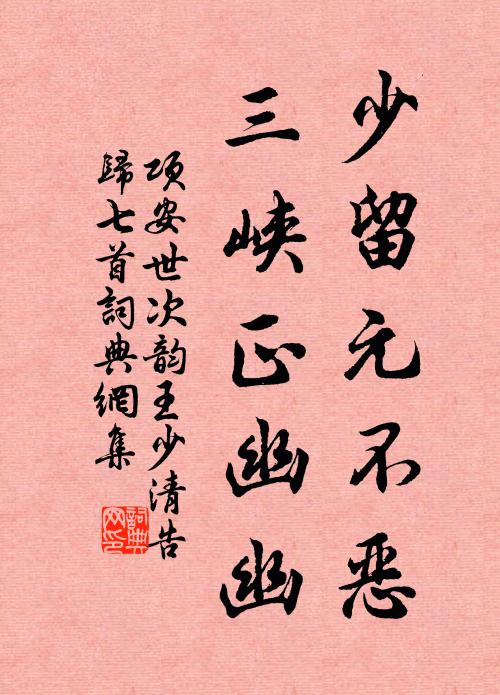 少留元不恶
三峡正幽幽
项安世次韵王少清告
歸七首詞典網集
詞典
网印